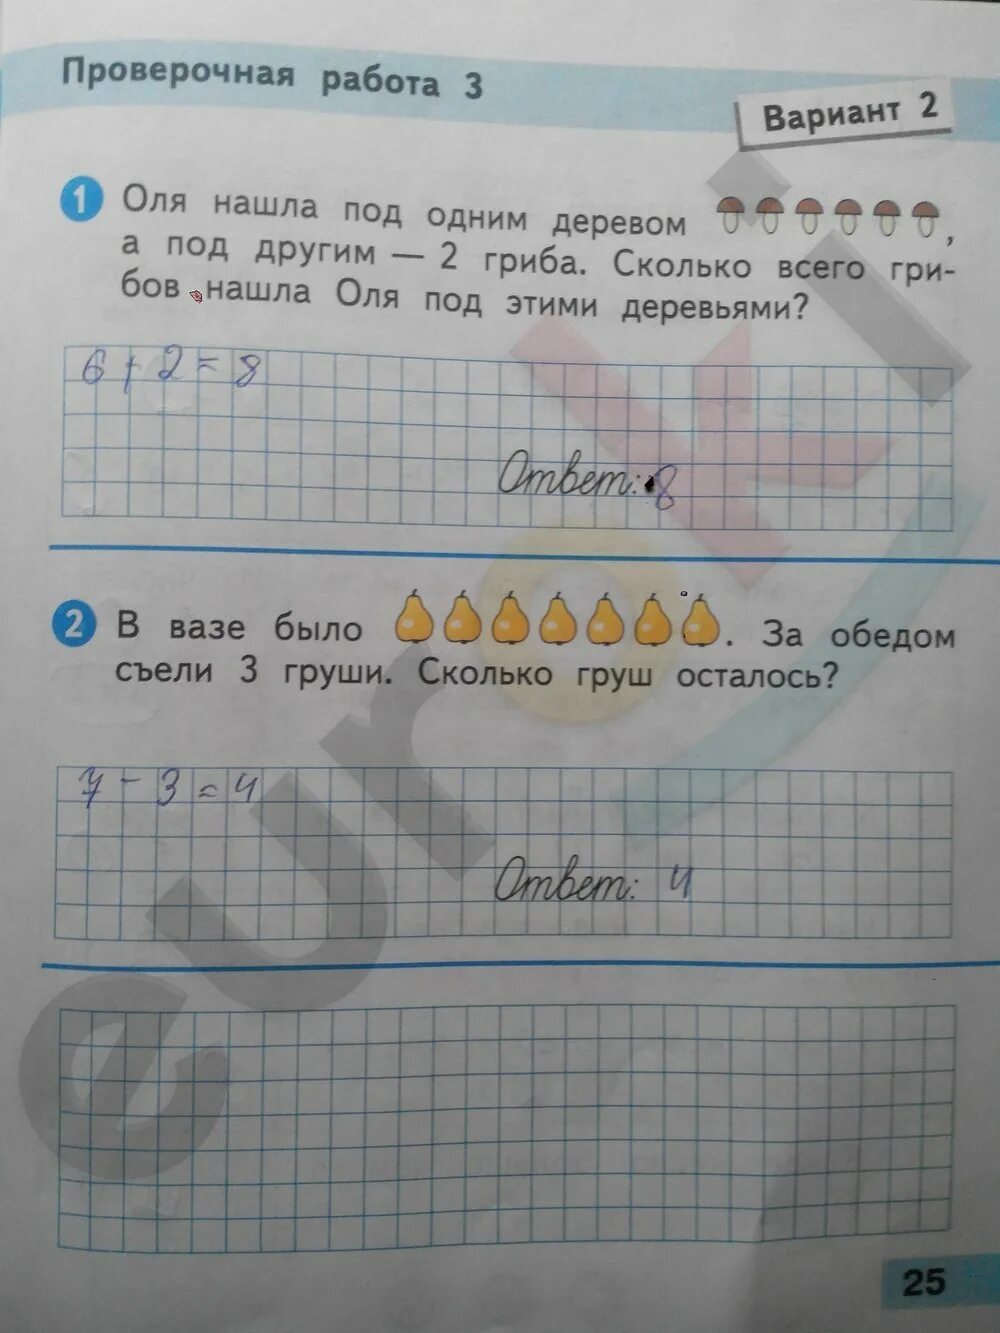 Проверочная работа 3
Вариант 2
1 Оля нашла под одним деревом ,
а под другим — 2 гриба. Сколько всего гри-
бов нашла Оля под этими деревьями?
6 + 2 = 8
Ответ: 8
2 В вазе было . За обедом
съели 3 груши. Сколько груш осталось?
7 - 3 = 4
Ответ: 4
25
euroki